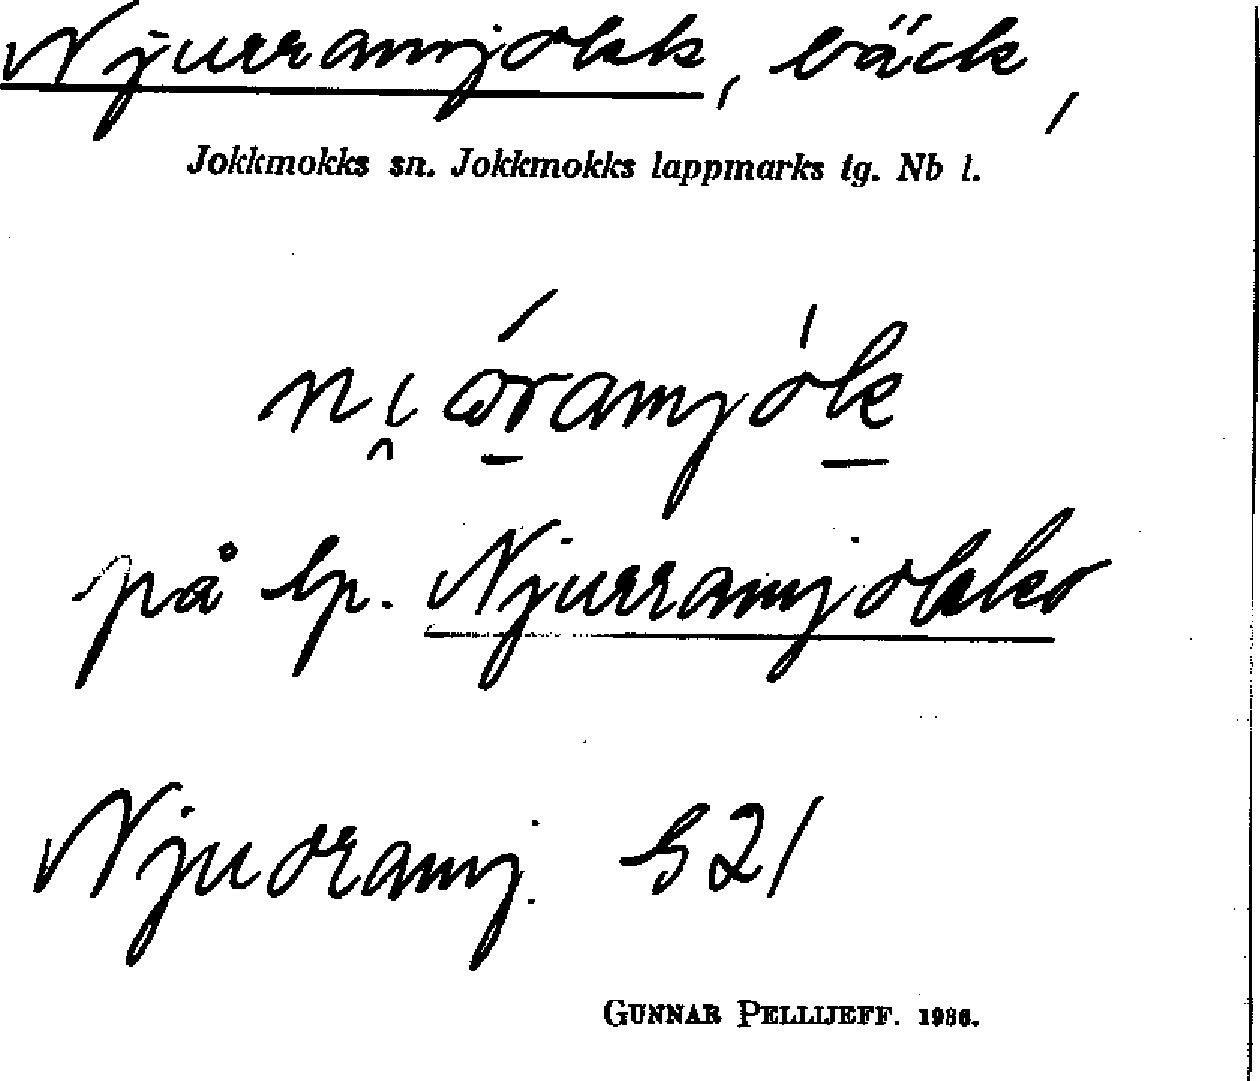 Njurramjokk, bäck,
Jokkmokks sn. Jokkmokks lappmarks tg. Nb l.
på lp. Njurramjokko
Njuoramj. S21
GUNNAR PELLIJEFF. 1936.